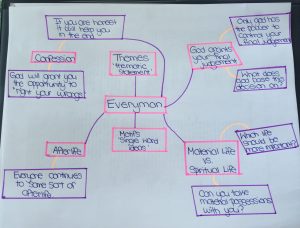 If you are honest
it will help you
in the end
Confession
God will grant you
the opportunity to
"right your wrongs"
Themes
thematic
statement
Everyman
Motifs
Single word
ideas
Afterlife
Everyone continues to
some sort of
afterlife
God grants
your final
judgement
Only God has
the power to
control your
final judgement
What does
God base this
decision on?
Material Life
vs.
Spiritual Life
Which life
should be
more important?
Can you take
material possessions
with you?